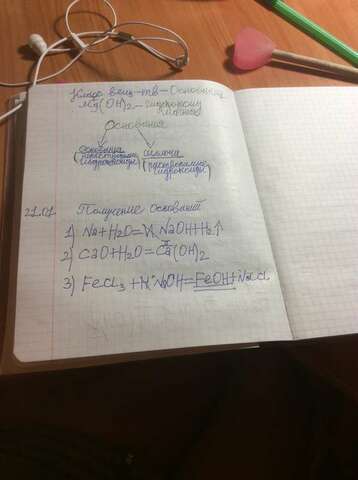 Класс вещ-тв – Основания
Mg(OH)₂ – гидроксид
магния
Основания
основания щелочи
(нерастворимые гидроксиды) (растворимые гидроксиды)
21.01. Получение оснований
1) Na+H₂O= NaOH+H₂↑
2) CaO+H₂O=Ca(OH)₂
3) FeCl₃ + NaOH=FeOH+NaCl